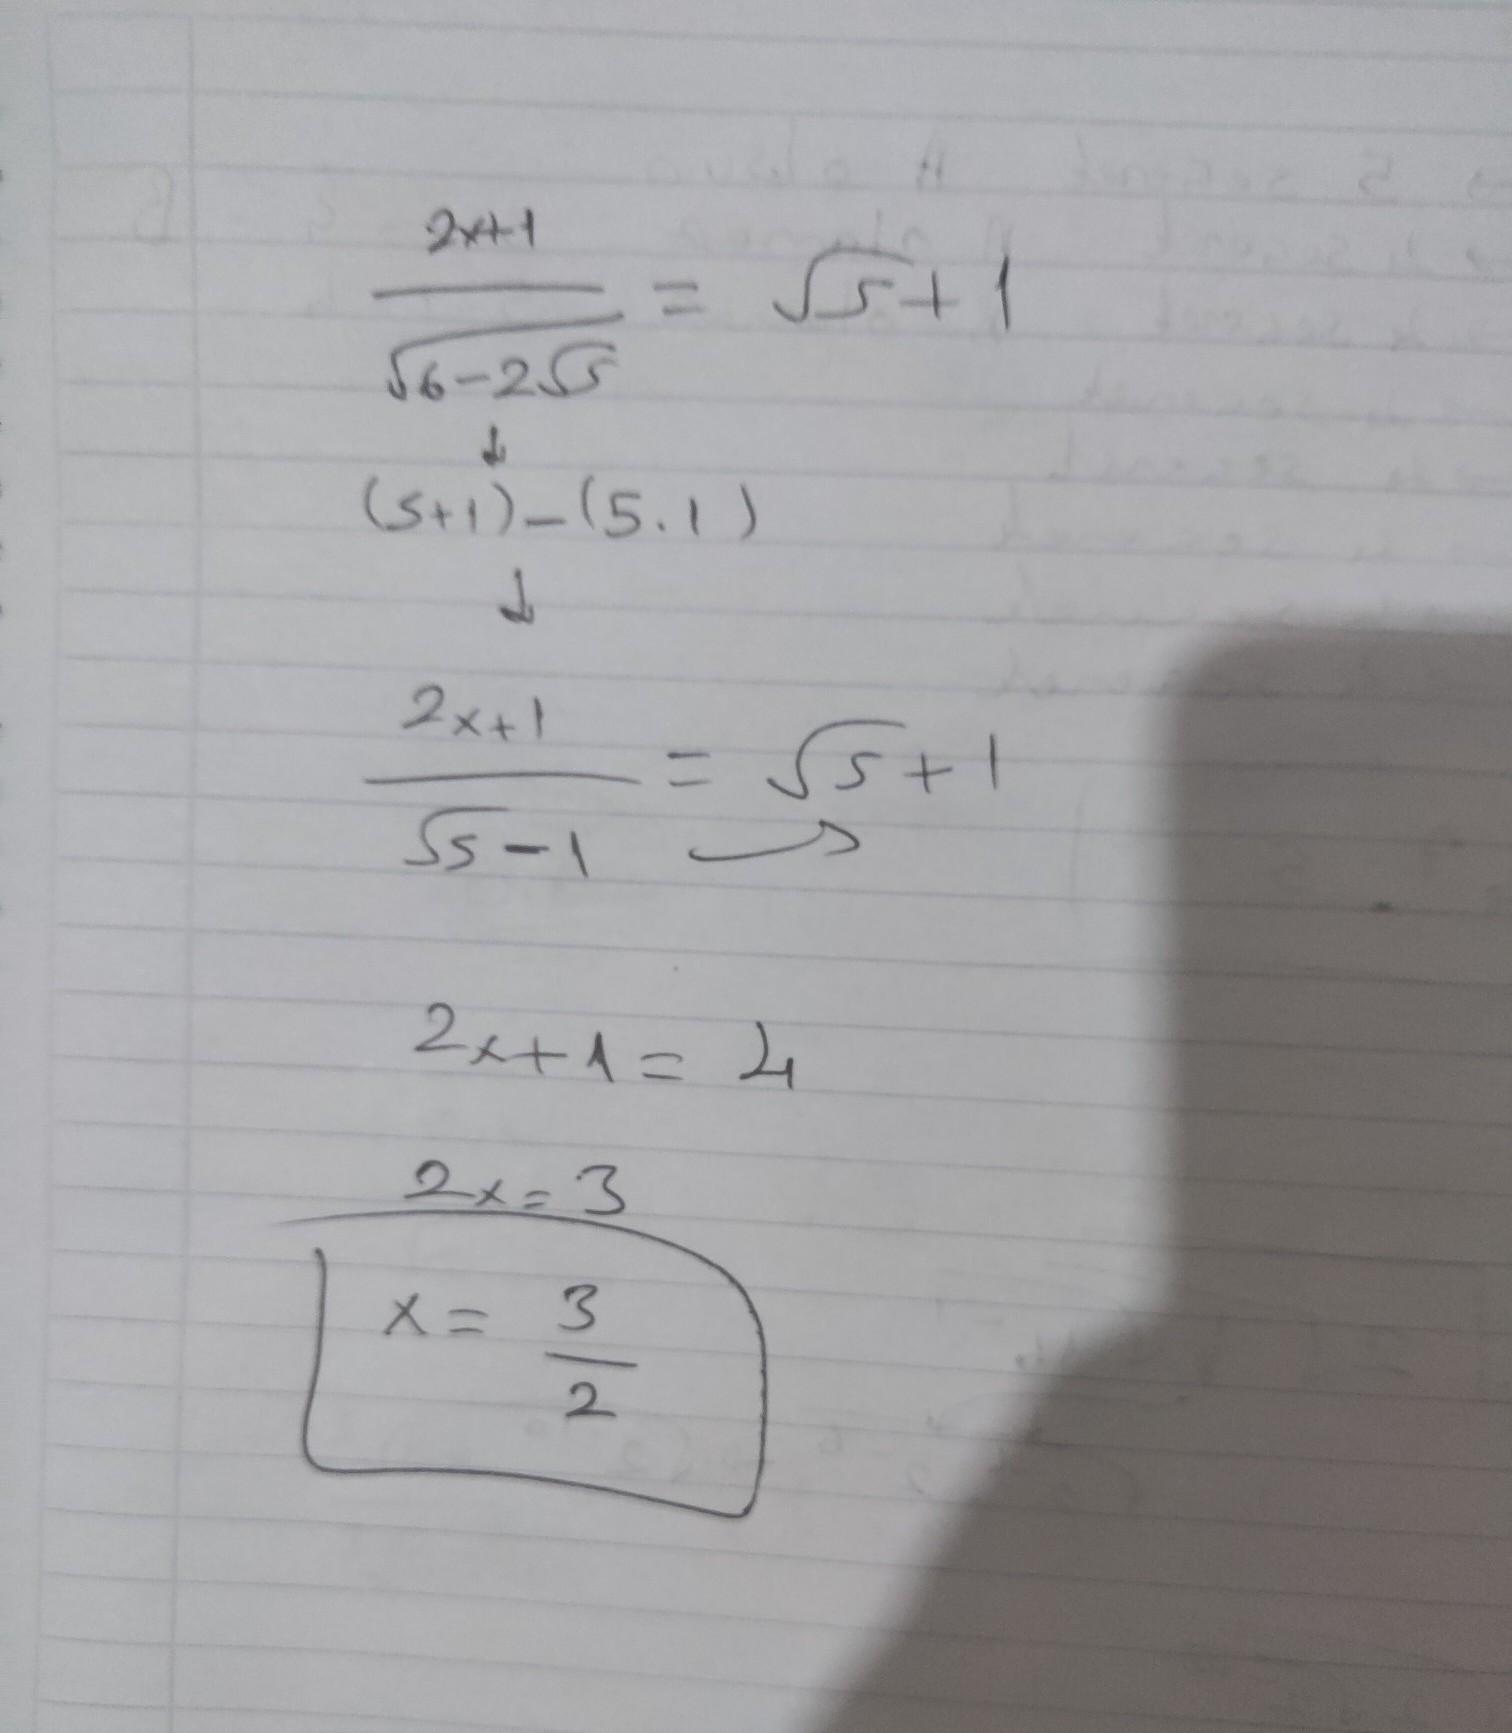 2x+1
√6-2√5 = √5+1
↓
(5+1)-(5.1)
↓
2x+1
√5-1 = √5+1
2x+1=4
2x=3
x= 3
2